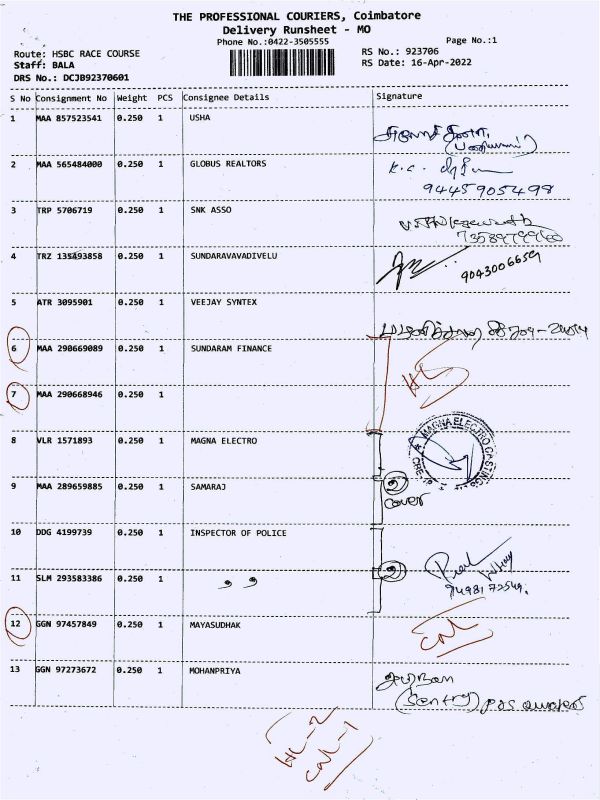 THE PROFESSIONAL COURIERS, Coimbatore
Delivery Runsheet - MO
Phone No.:0422-3505555
Page No.:1
Route: HSBC RACE COURSE
RS No.: 923706
Staff: BALA
RS Date: 16-Apr-2022
DRS No.: DCJB92370601
S No Consignment No Weight PCS Consignee Details Signature
1 MAA 857523541 0.250 1 USHA
2 MAA 565484000 0.250 1 GLOBUS REALTORS
9445905498
3 TRP 5706719 0.250 1 SNK ASSO
4 TRZ 135493858 0.250 1 SUNDARAVAVADIVELU
9043006659
5 ATR 3095901 0.250 1 VEEJAY SYNTEX
6 MAA 290669089 0.250 1 SUNDARAM FINANCE
7 MAA 290668946 0.250 1
8 VLR 1571893 0.250 1 MAGNA ELECTRO
MAGNA ELECTRO CASTINGS
9 MAA 289659885 0.250 1 SAMARAJ
2
cover
10 DDG 4199739 0.250 1 INSPECTOR OF POLICE
11 SLM 293583386 0.250 1 ,, 2
12 GGN 97457849 0.250 1 MAYASUDHAK
13 GGN 97273672 0.250 1 MOHANPRIYA
(Sentry)